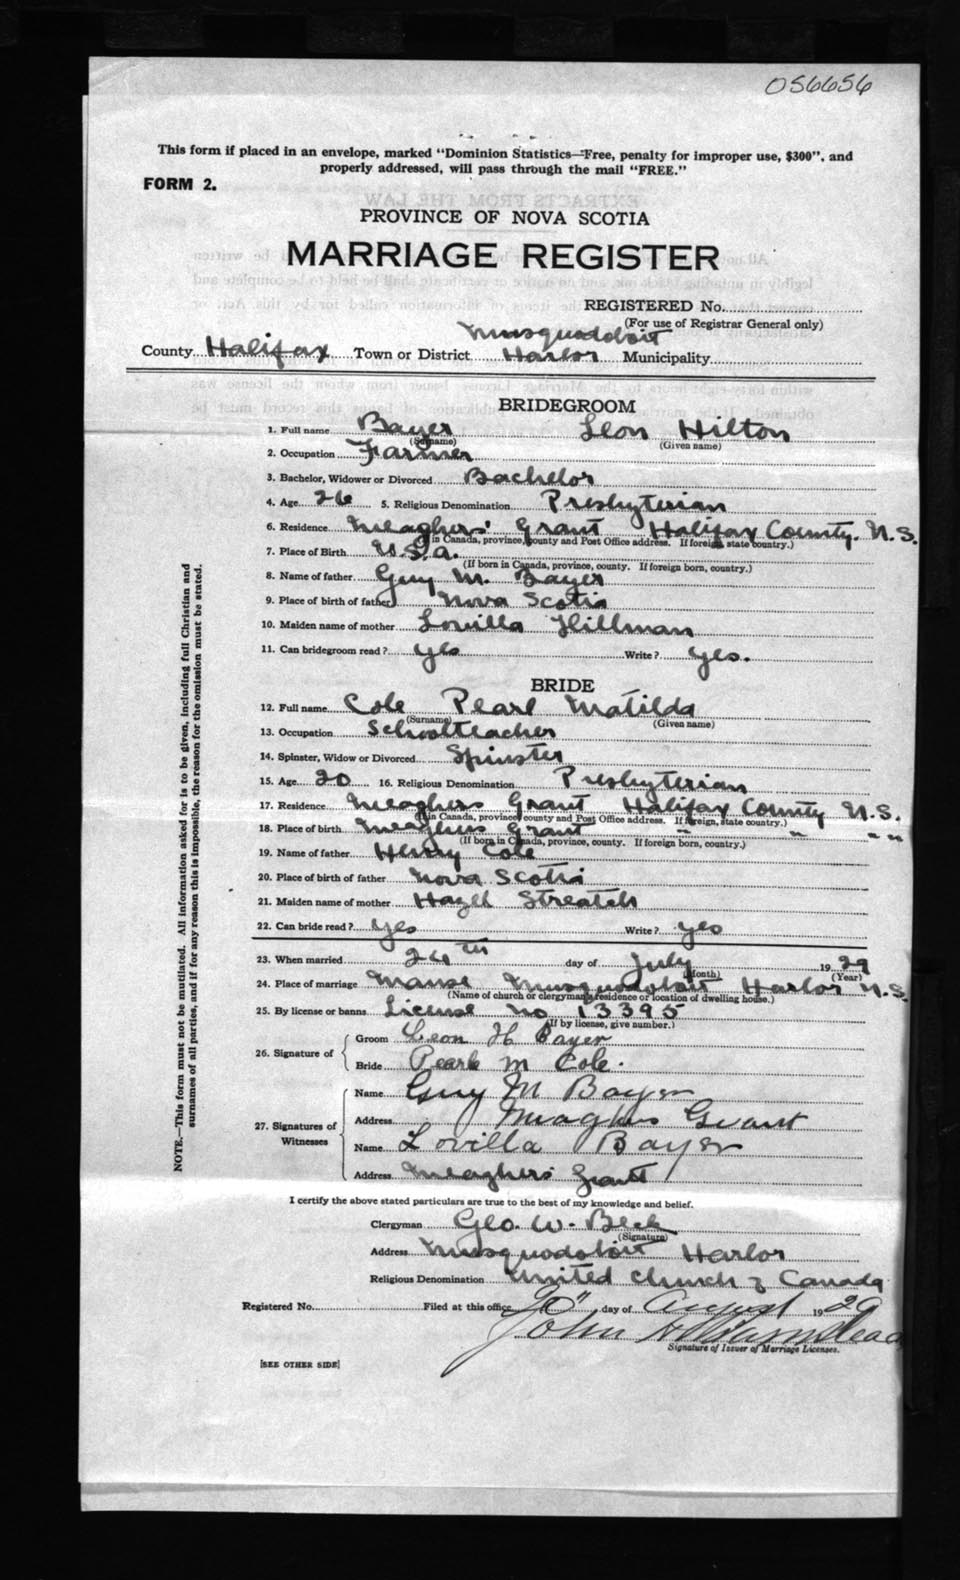 056656
This form if placed in an envelope, marked "Dominion Statistics—Free, penalty for improper use, $300", and
properly addressed, will pass through the mail "FREE."
FORM 2.
PROVINCE OF NOVA SCOTIA
MARRIAGE REGISTER
REGISTERED No.
(For use of Registrar General only)
Musquodoboit
County Halifax Town or District Harbor Municipality
BRIDEGROOM
1. Full name Bayer Leon Hilton
(Surname) (Given name)
2. Occupation Farmer
3. Bachelor, Widower or Divorced Bachelor
4. Age 26 5. Religious Denomination Presbyterian
6. Residence Meaghers' Grant Halifax County. N.S.
(If in Canada, province, county and Post Office address. If foreign, state country.)
7. Place of Birth U.S.A.
(If born in Canada, province, county. If foreign born, country.)
8. Name of father Guy M. Bayer
9. Place of birth of father Nova Scotia
10. Maiden name of mother Lovilla Hillman
11. Can bridegroom read? yes Write? yes.
BRIDE
12. Full name Cole Pearl Matilda
(Surname) (Given name)
13. Occupation Schoolteacher
14. Spinster, Widow or Divorced Spinster
15. Age 20 16. Religious Denomination Presbyterian
17. Residence Meaghers Grant Halifax County N.S.
(If in Canada, province, county and Post Office address. If foreign, state country.)
18. Place of birth Meaghers Grant " " " "
(If born in Canada, province, county. If foreign born, country.)
19. Name of father Henry Cole
20. Place of birth of father Nova Scotia
21. Maiden name of mother Hazel Streatch
22. Can bride read? yes Write? yes
23. When married 24th day of July 1929
(Month) (Year)
24. Place of marriage Manse Musquodoboit Harbor N.S.
(Name of church or clergyman's residence or location of dwelling house.)
25. By license or banns License no 13395
(If by license, give number.)
26. Signature of
Groom Leon H Bayer
Bride Pearl M Cole.
27. Signatures of Witnesses
Name Guy M Bayer
Address Meaghers Grant
Name Lovilla Bayer
Address Meaghers' Grant
I certify the above stated particulars are true to the best of my knowledge and belief.
Clergyman Geo. W. Beck
(Signature)
Address Musquodoboit Harbor
Religious Denomination United Church of Canada
Registered No. Filed at this office day of August 1929
John
Signature of Issuer of Marriage Licenses.
[SEE OTHER SIDE]
NOTE.—This form must not be mutilated. All information asked for is to be given, including full Christian and
surnames of all parties, and if for any reason this is impossible, the reason for the omission must be stated.